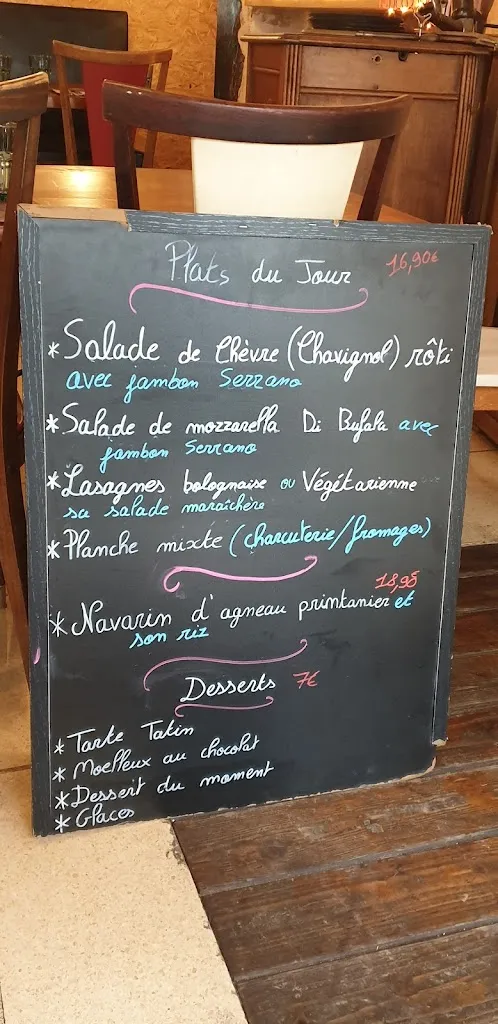 Plats du Jour 16,90€
*Salade de Chèvre (Chavignol) rôti
avec jambon Serrano
*Salade de mozzarella Di Bufala avec
jambon Serrano
*Lasagnes bolognaise ou Végétarienne
sa salade maraîchère
*Planche mixte (charcuterie/fromages)
18,90€
*Navarin d'agneau printanier et
son riz
Desserts 7€
*Tarte Tatin
*Moelleux au chocolat
*Dessert du moment
*Glaces